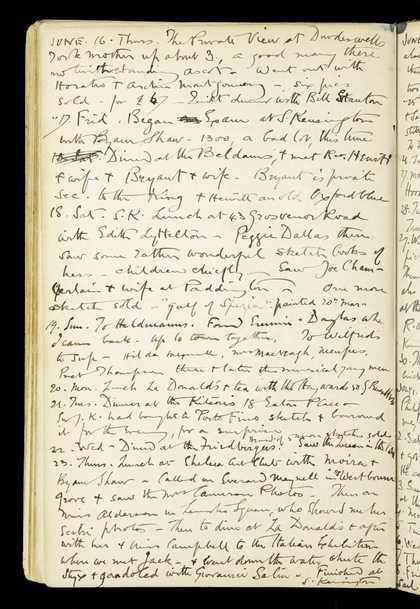 JUNE. 16. Thurs. The Private View at Dowdeswells
Took mother up about 3, a good many there
notwithstanding Ascot. Went out with
Horatio & Archie Montgomery - six pics
sold - for £67 - Quiet dinner with Bill Stanton
17 Frid. Began Exam at S. Kensington
with Byam Shaw. 1300, a bad lot, this time
Dined at the Beldams, & met Rev. Hewitt
& wife & Bryant & wife. Bryant is private
Sec. to the King & Hewitt an old Oxford blue
18. Sat. S.K. Lunch at 43 Grosvenor Road
with Edith Lyttelton - Peggie Dallas there
saw some rather wonderful sketch books of
hers - children chiefly - Saw Joe Cham-
berlain & wife at Paddington - One more
sketch sold - "Gulf of Spezia" painted 20th Mar.
19. Sun. To Heldmanns. Found & Douglas who
I came back up to town together. To Wilfreds
to sup - Hilda Meynell, Mrs MacVeagh,
Poet Thompson there & later the musical young men
20. Mon. Lunch La Donald's & tea with the Haywards 50 G
21. Tues. Dinner at the Kitsons 18 Eaton Place
Sir J. K. had bought a Porto Fino sketch & borrowed
it for the evening, for a surprise
22. Wed - Dined at the Friedbergers. Heard of 2 more sketches sold
23. Thurs. Lunch at Chelsea Art Club with Moira &
Byam Shaw - Called on Everard Meynell in Westbourne
Grove & saw the Mrs Cameron Photos. - Then on
Miss Alderson in Square, who showed me her
photos - Then to dine at La Donald's & after
with her & Miss Campbell to the Italian Exhibition
where we met Jack - & went down the water chute the
Styx & gondoled with Giovanni Salin - Finished at
S. Kensington